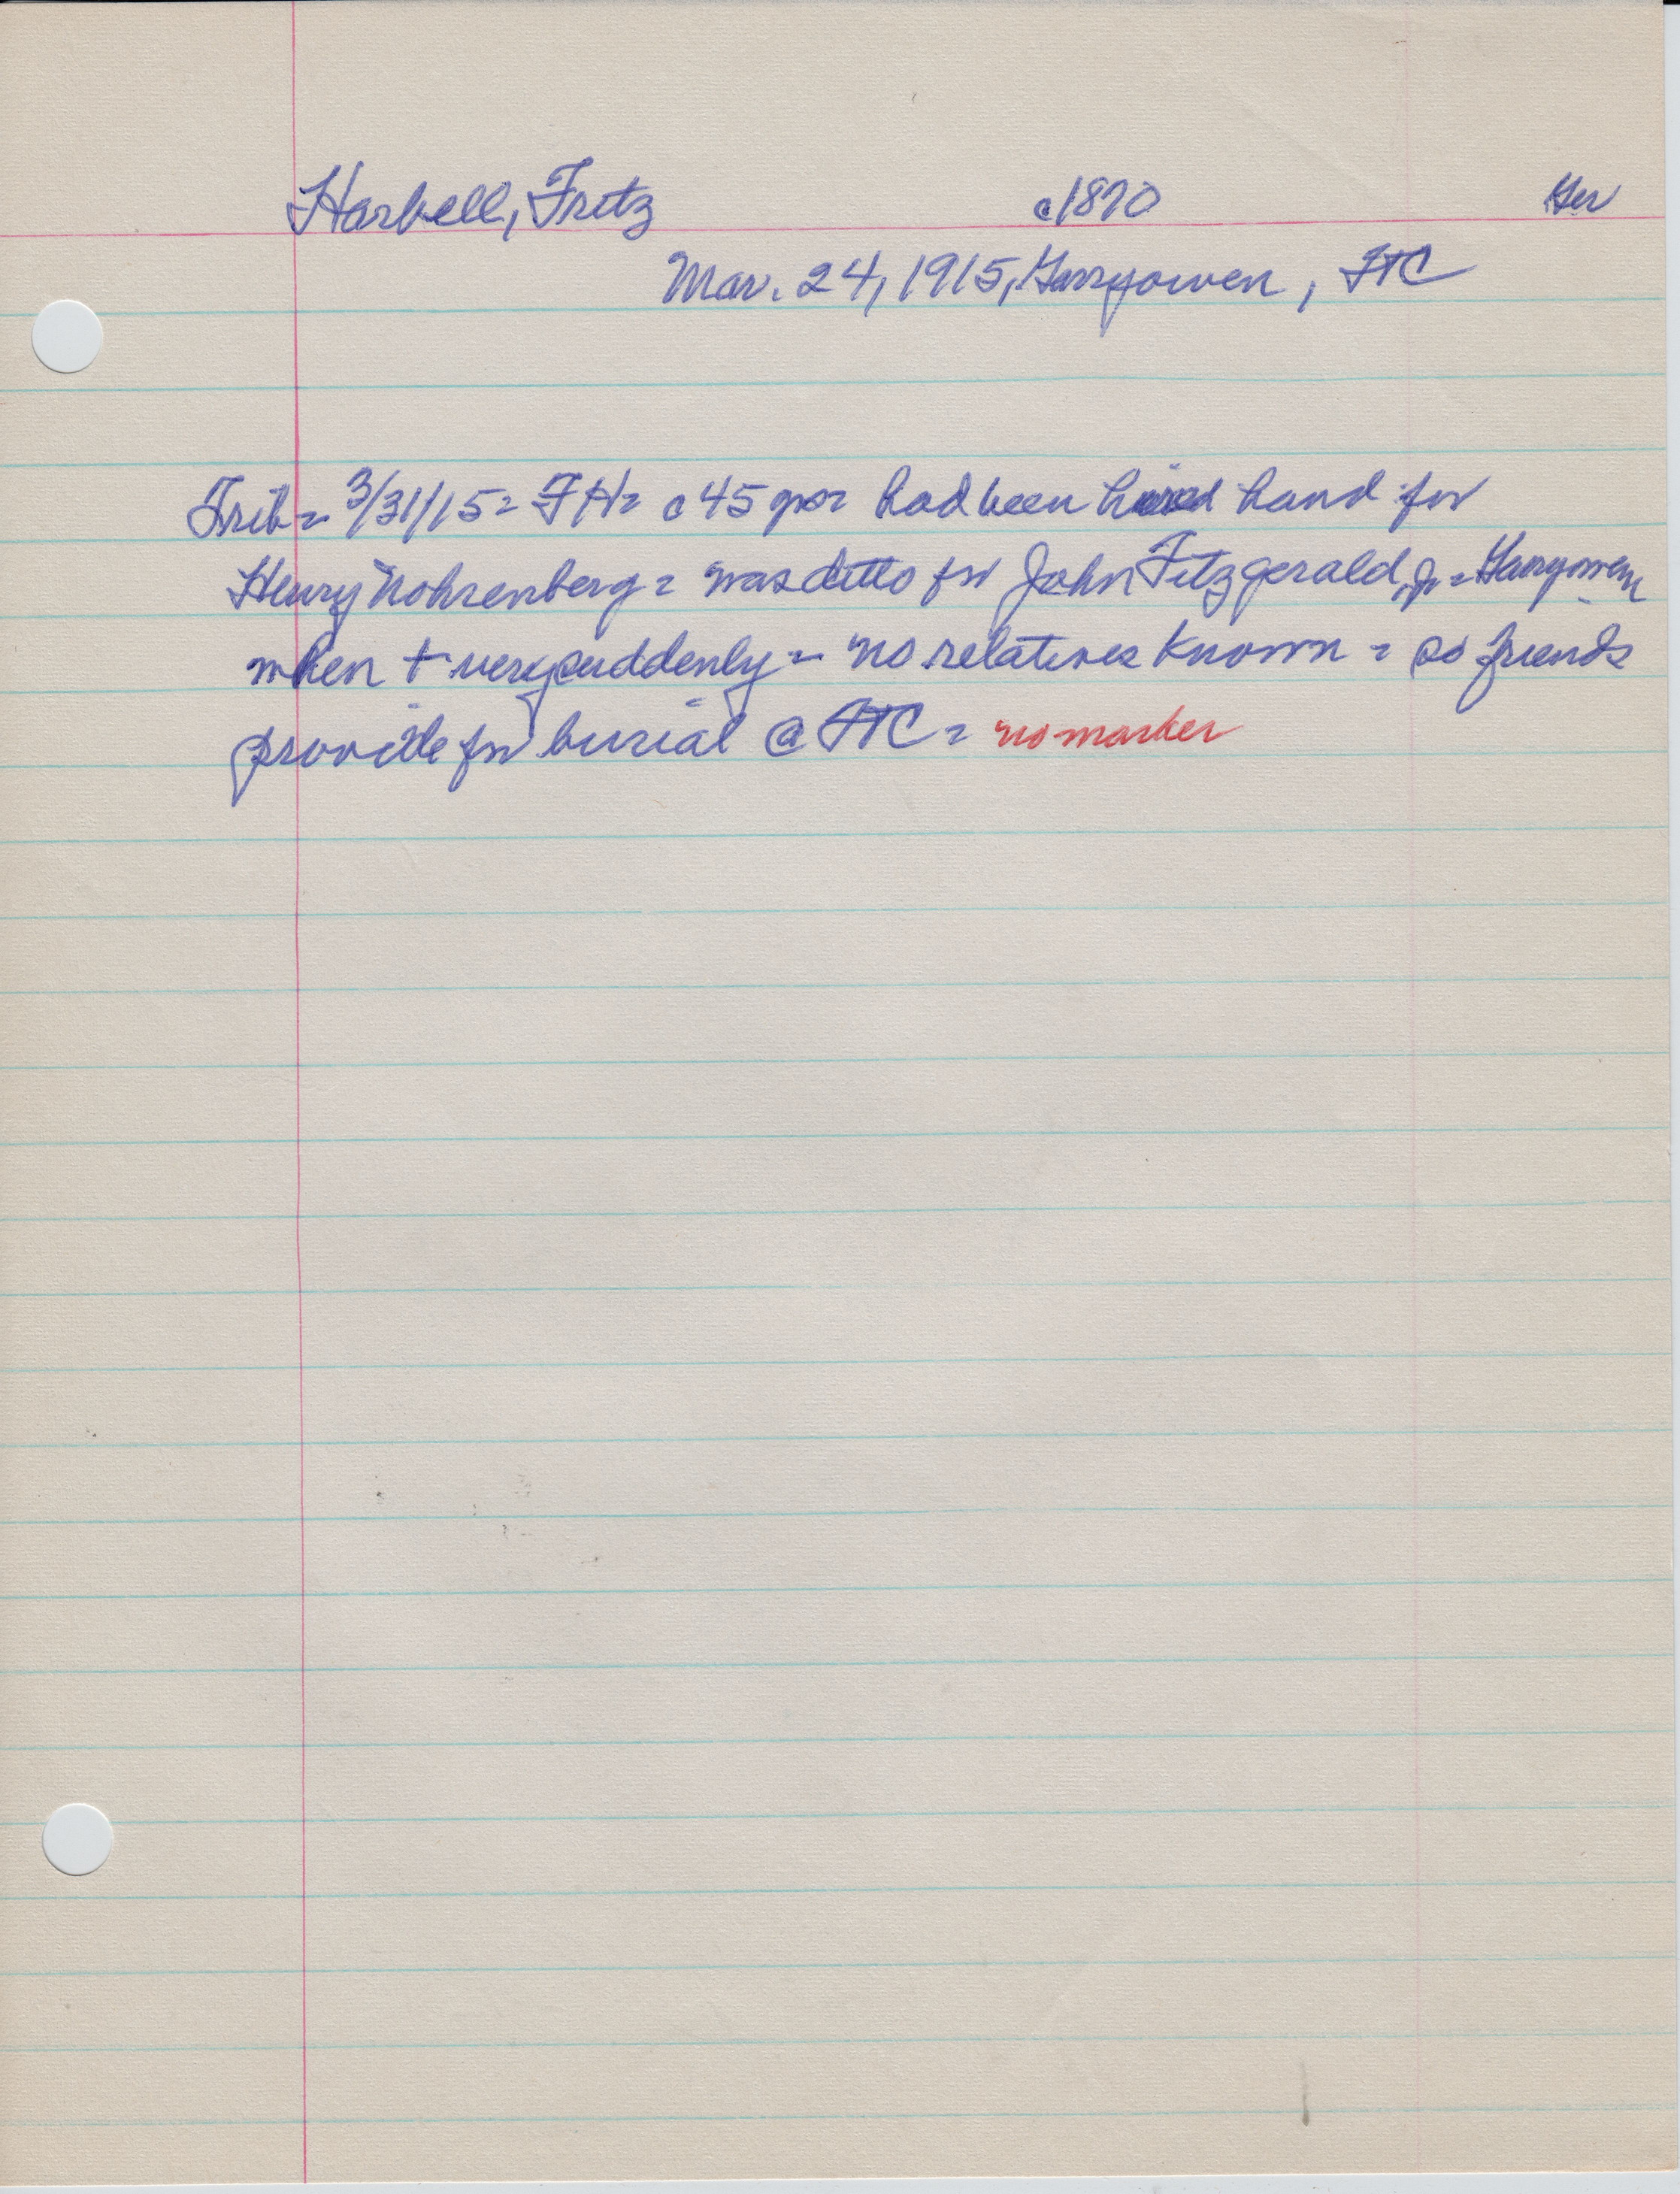 Harbell, Fritz c1870 Ger
Mar. 24, 1915, Garryowen, FTC
Trib = 3/31/15 = FH = c 45 yrs = had been hired hand for
Henry Nohrenberg = was ditto for John Fitzgerald, Jr = Garryowen
when + very suddenly = no relatives known = so friends
provide for burial @ FTC = no marker